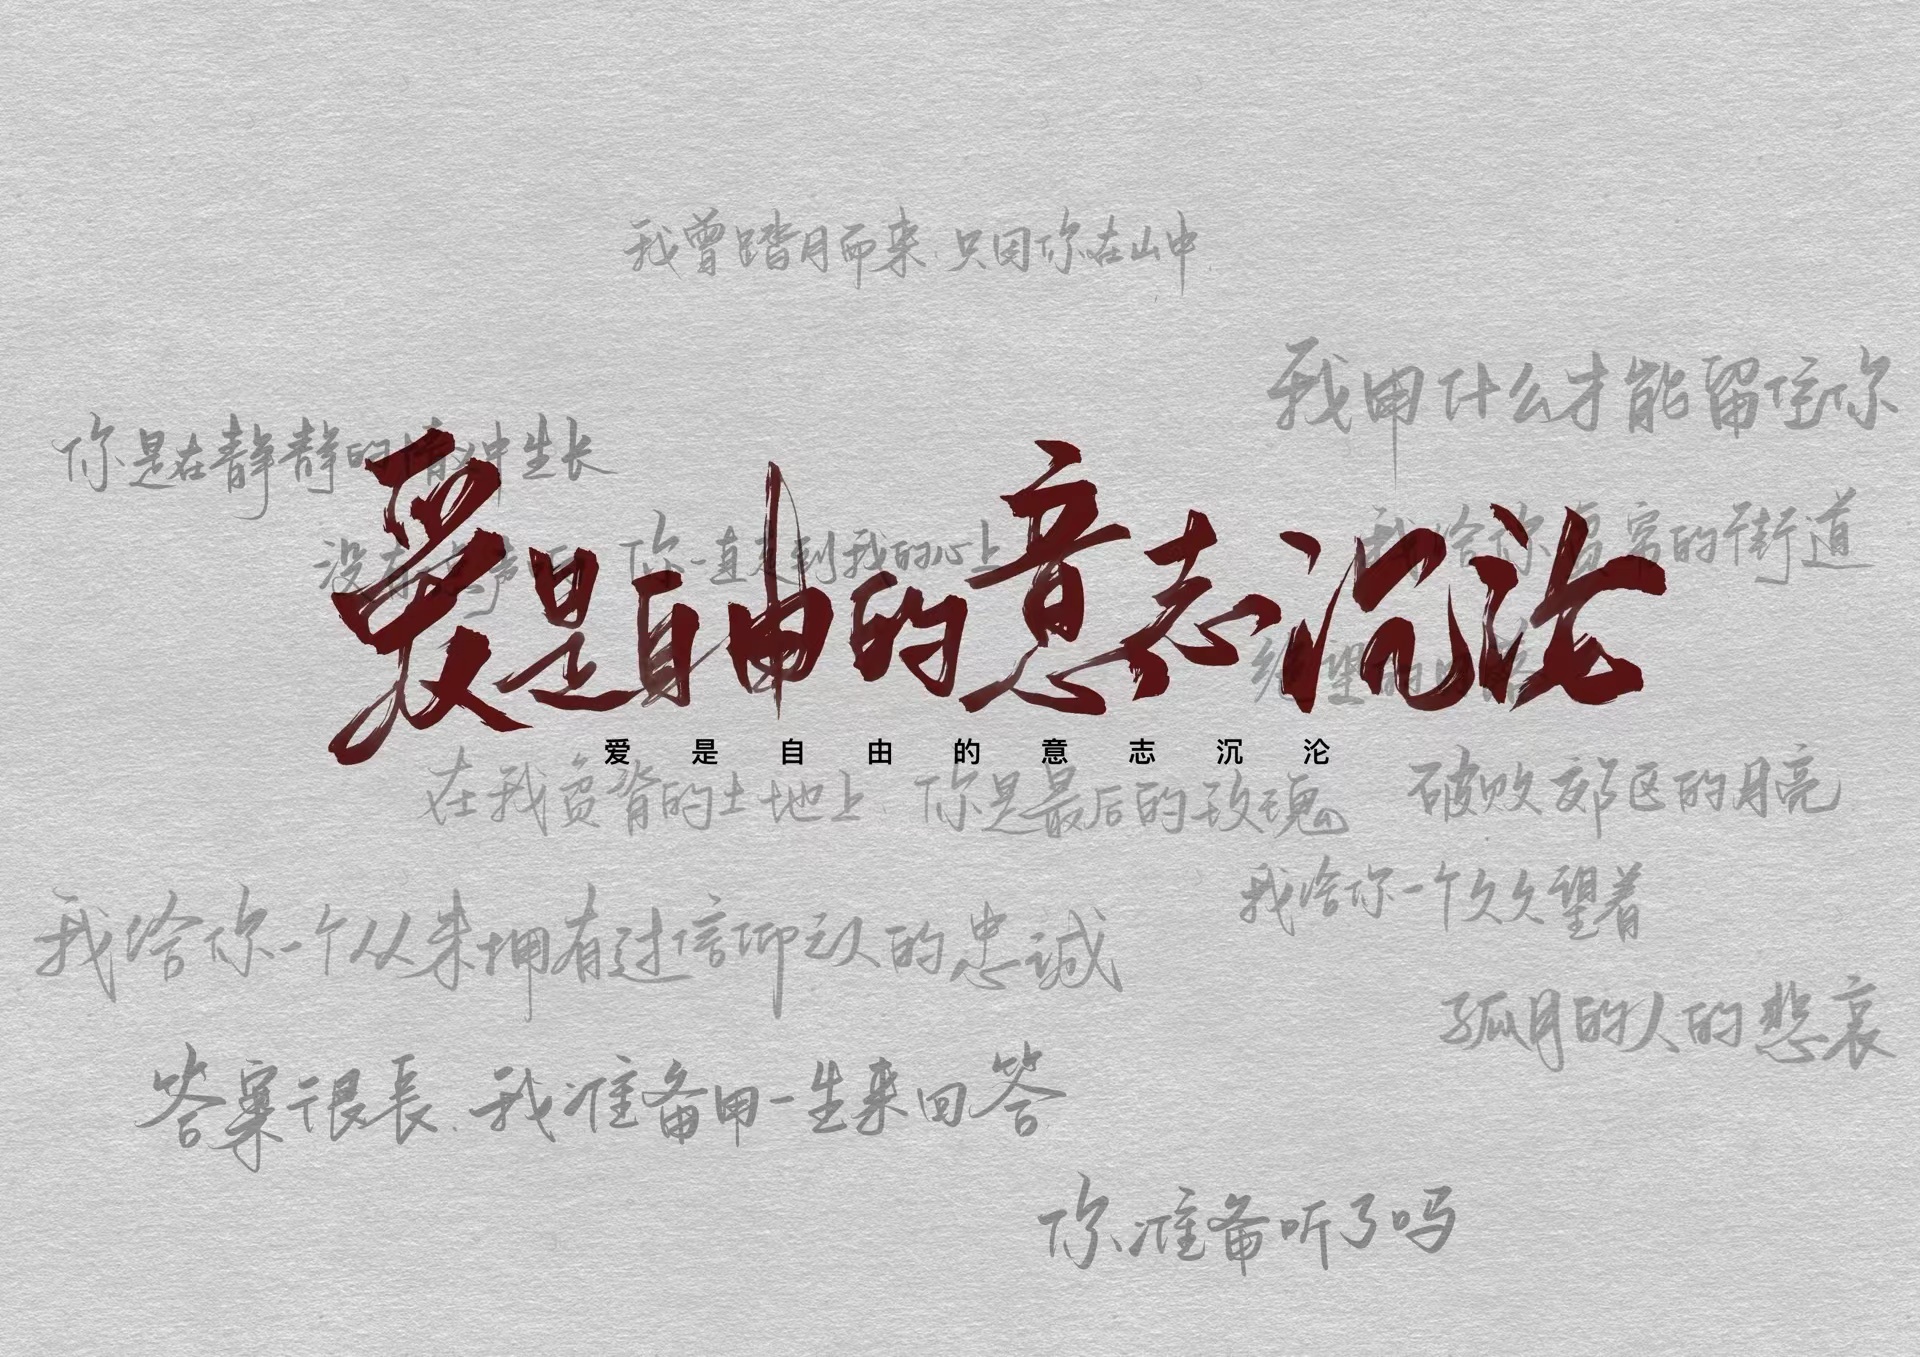 我曾踏月而来,只因你在山中.
我用什么才能留住你
你是在静静的情义中生长
没有一点声响 你一直走到我的心上
我给你贫穷的街道
爱是自由的意志沉沦
绝望的日落
爱是自由的意志沉沦
在我贫瘠的土地上,你是最后的玫瑰
破败郊区的月亮
我给你一个久久望着
我给你一个从未拥有过信仰之人的忠诚
孤月的人的悲哀
答案很長,我准备用一生来回答
你准备听了吗